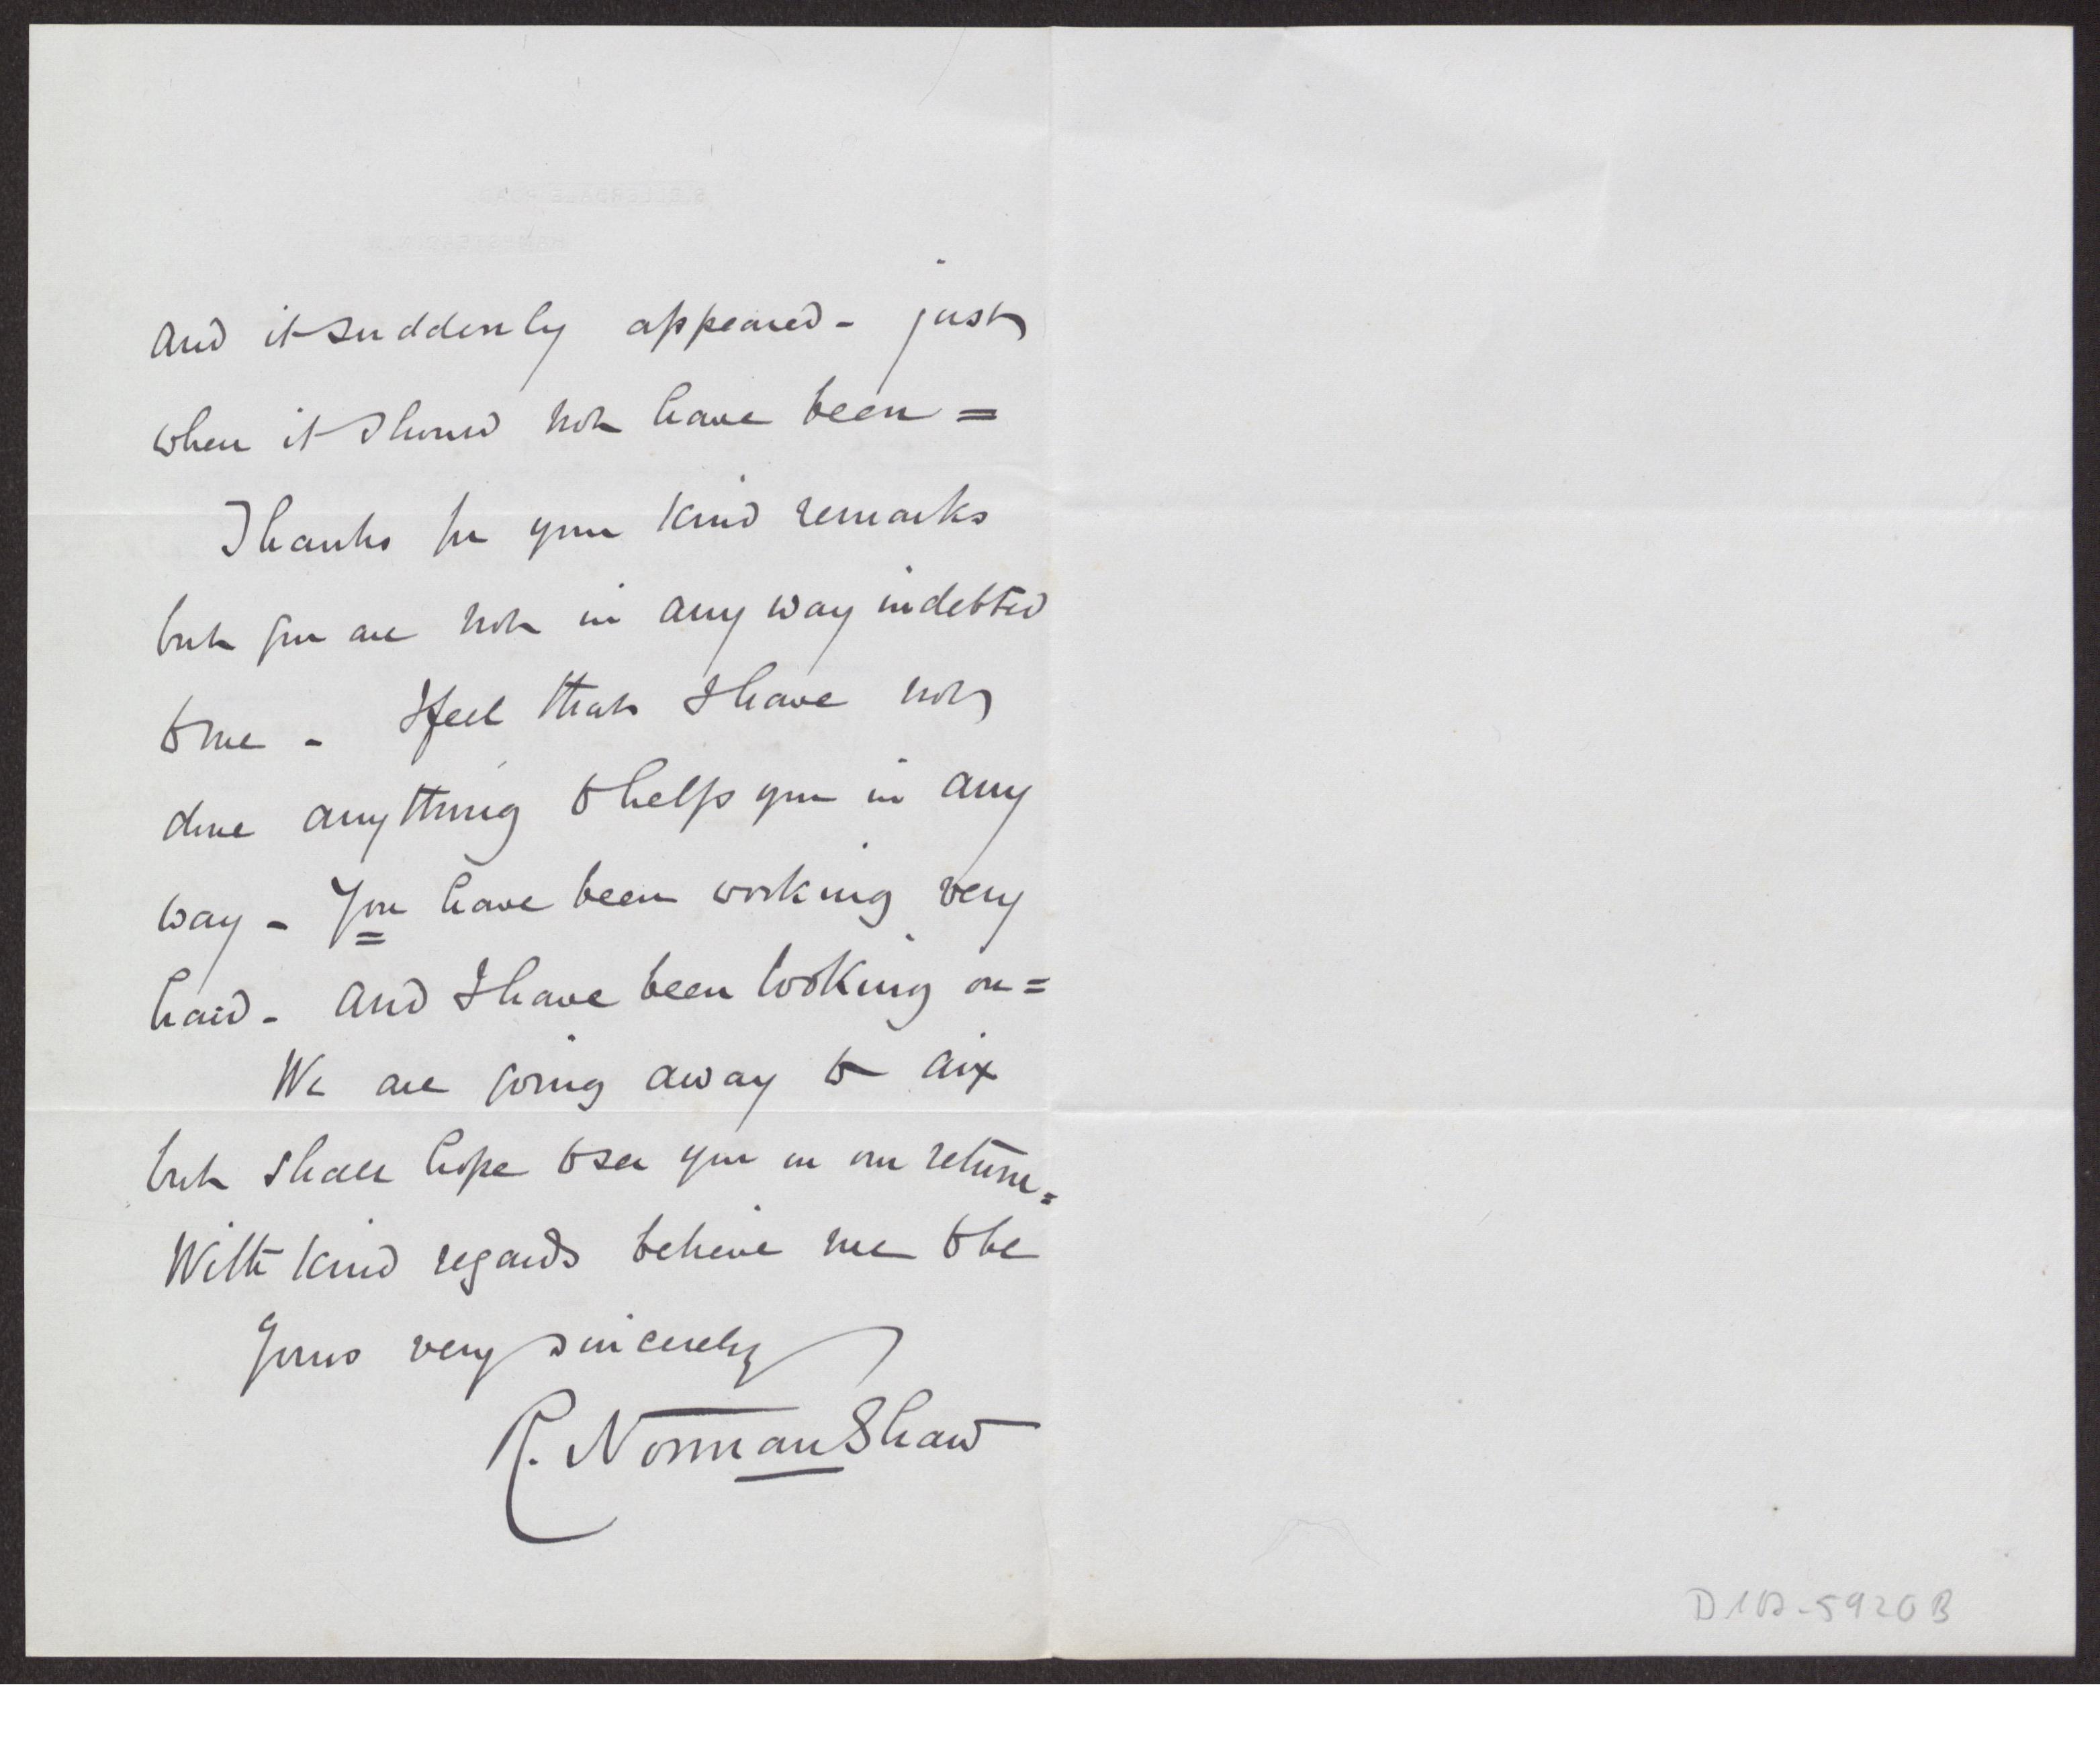 and it suddenly appeared - just
when it should not have been =
Thanks for your kind remarks
but you are not in any way indebted
to me - I feel that I have not
done anything to help you in any
way - You have been working very
hard - and I have been looking on =
We are going away to Aix
but shall hope to see you on our return =
With kind regards believe me to be
Yours very sincerely
R. Norman Shaw